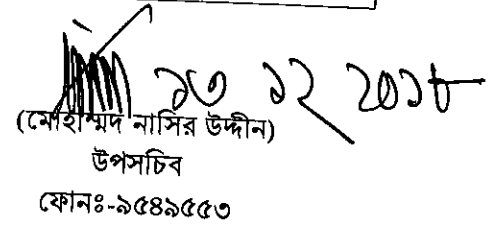 ১৩ ১২ ২০১৮
(মোহাম্মদ নাসির উদ্দীন)
উপসচিব
ফোনঃ-৯৫৪৯৫৫৩